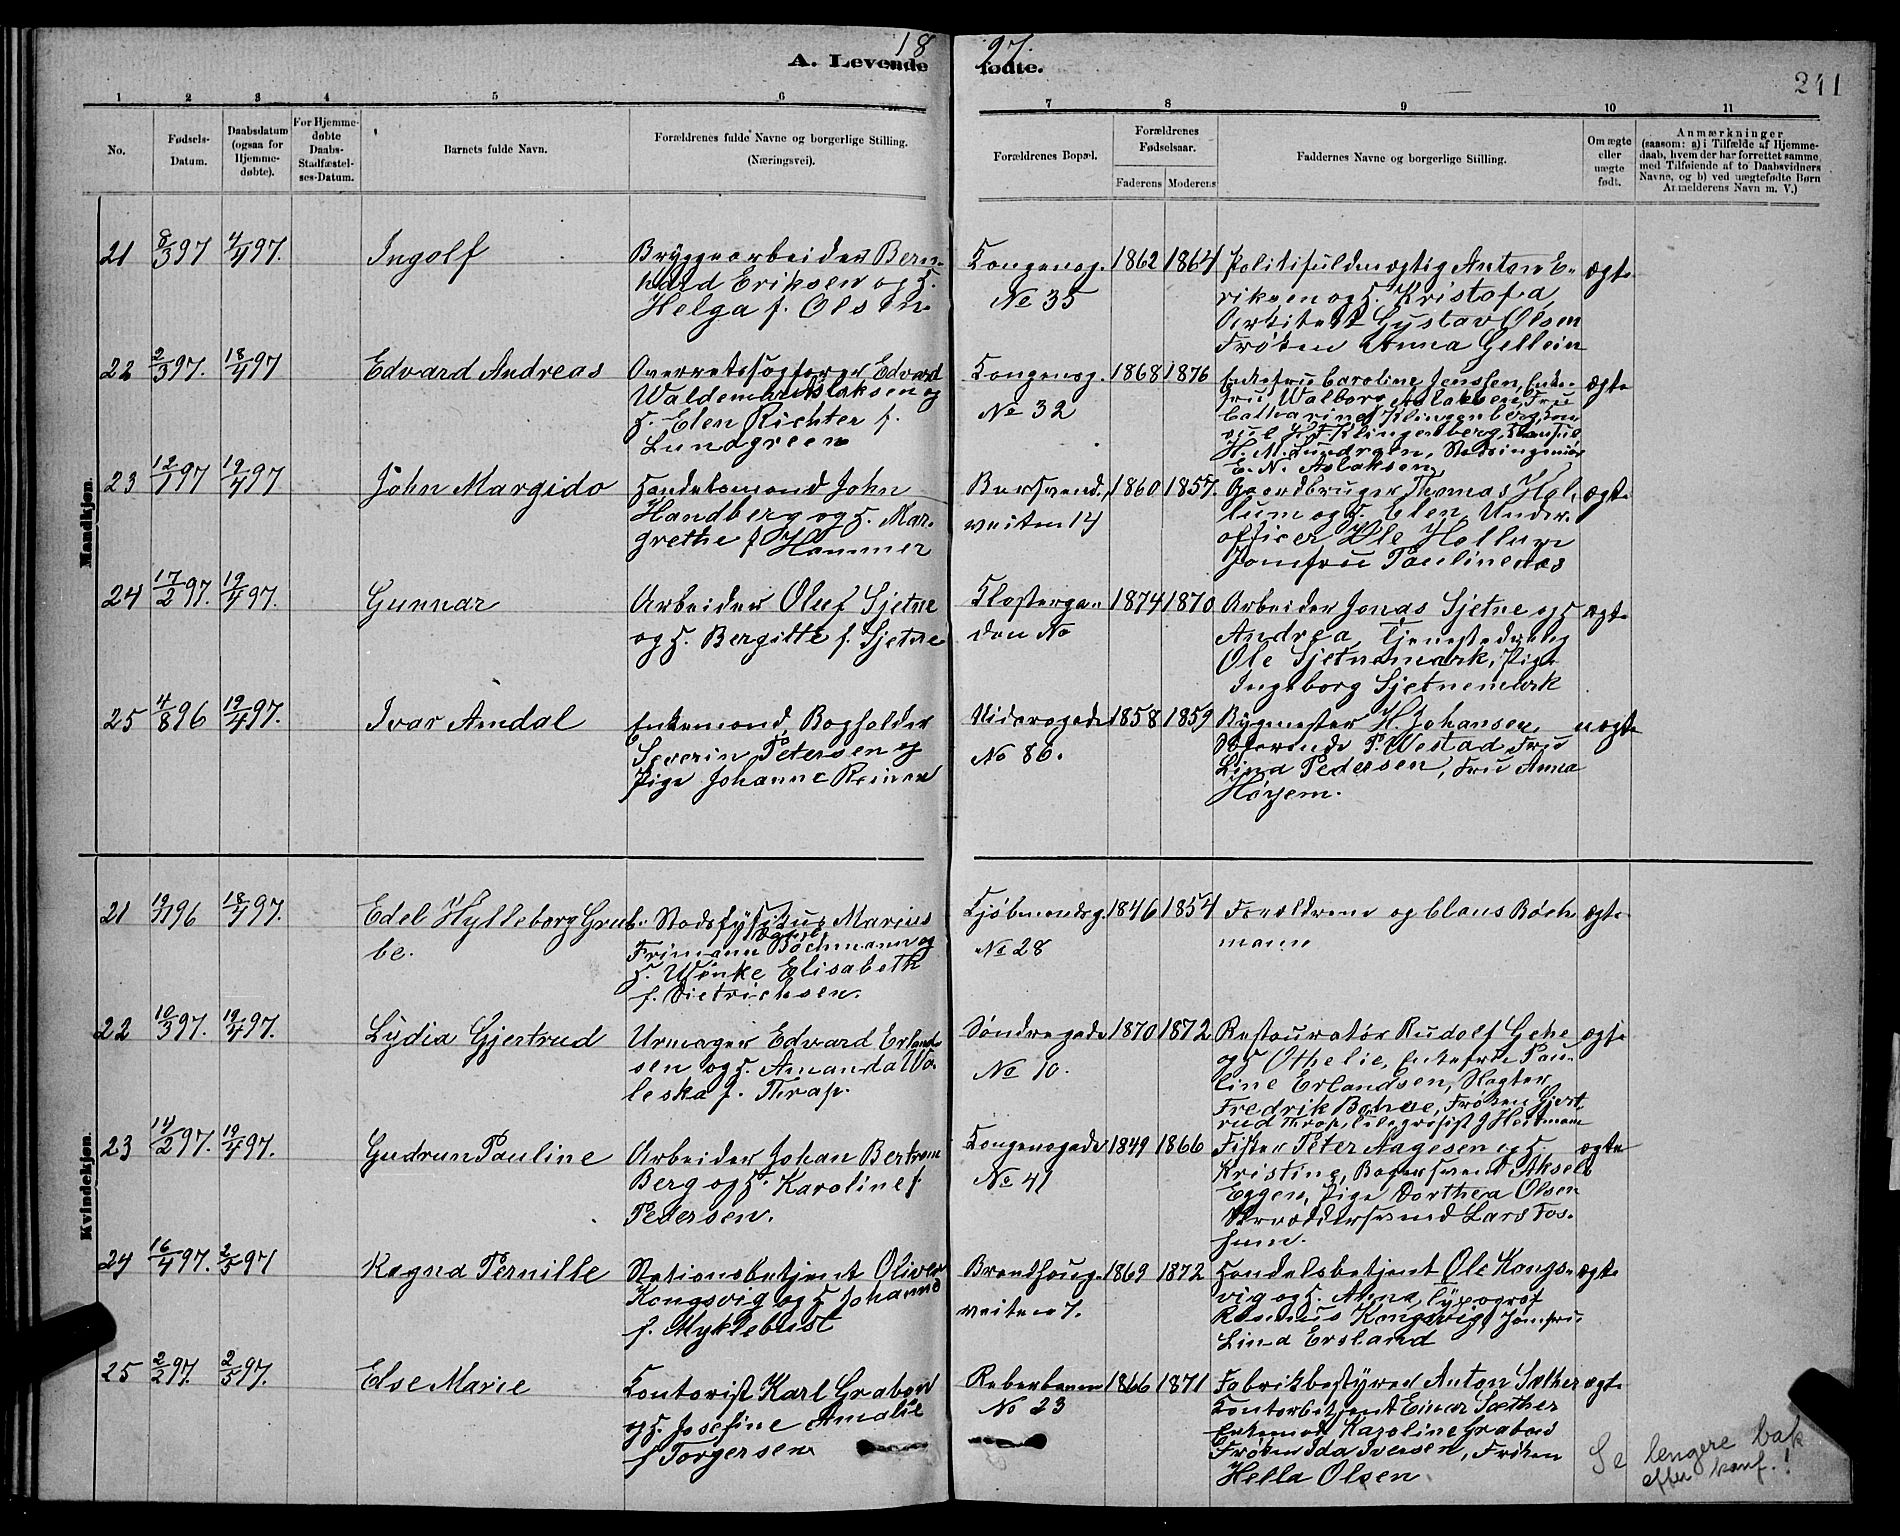 18 97.
A. Levende fødte.
241
1 2 3 4 5 6 7 8 9 10 11
No.
Fødsels-
Datum.
Daabsdatum
(ogsaa for
Hjemme-
døbte).
For Hjemme-
døbte
Daabs-
Stadfæstel-
ses-Datum.
Barnets fulde Navn.
Forældrenes fulde Navne og borgerlige Stilling.
(Næringsvei).
Forældrenes Bopæl.
Forældrenes
Fødselsaar.
Faderens Moderens
Faddernes Navne og borgerlige Stilling.
Om ægte
eller
uægte
født.
Anmærkninger
(saasom: a) i Tilfælde af Hjemme-
daab, hvem der har forrettet samme
med Tilføiende af to Daabsvidners
Navne, og b) ved uægtefødte Børn
Anmelderens Navn m. V.)
Mandkjøn.
21 8/3 97 4/4 97. Ingolf
Bryggearbeider Bern-
hard Eriksen og H.
Helga f. Olsen
Kongensg.
No 35
1862 1864
Politifuldmægtig Anton E-
riksen og H. Kristofa
Arkitekt Gustav Olsen
Frøken Anna Gellein
ægte
22 2/3 97. 18/4 97 Edvard Andreas
Overretssagfører Edvard
Waldemar Aslaksen og
H. Elen Richter f.
Lundgreen
Kongensg.
No 32
1868 1876
Enkefru Caroline Jenssen, Enke-
fru Walborg Aslaksen, Fru
Catharina Klingenberg, Kon-
sul Klingenberg, Konsul
H. M. Lundgren, Stadsingeniør
E. N. Aslaksen
ægte
23 12/1 97 19/4 97 John Margido
Handelsmand John
Handberg og H. Mar-
grethe f. Hammer
Bersvend-
veiten 14
1860 1857.
Gaardbruger Thomas Hol-
lum og H. Elen, Under-
officer Ole Hollum
Jomfru Pauline
ægte
24 17/2 97. 19/4 97. Gunnar
Arbeider Oluf Sjetne
og H. Bergitte f. Sjetne
Klosterga-
den No
1874 1870
Arbeider Jonas Sjetne og H
Andrea, Tjenestedreng
Ole Sjetnemark, Pige
Ingeborg Sjetnemark
ægte
25 4/8 96 19/4 97. Ivar Amdal
Enkemand, Bogholder
Severin Petersen og
Pige Johanne Reinaas
Nidarogade
No 86.
1858 1859
Bygmester H. Johansen,
P. Westad, Fru
Lina Pedersen, Fru Anna
Høyem.
uægte
Kvindekjøn.
21 96 18/4 97. Edel Hylleborg Grub-
be.
Stadsfysikus Marius
Frimann Bøchmann og
H. Wenke Elisabeth
f. Dietrichsen.
Kjøbmandsg.
No 28
1846 1854
Forældrene og Claus Bøch-
mann
ægte
22 10/3 97. 19/4 97. Lydia Gjertrud
Urmager Edvard Erland-
sen og H. Amanda Wa-
leska f. Thrap.
Søndregade
No 10.
1870 1872
Restauratør Rudolf Gehe
og H Othelie, Enkefru Pau-
line Erlandsen, Slagter
Fredrik Bohne, Frøken Gjert-
rud Thrap, J Heitmann
ægte
23 14/2 97. 19/4 97. Gudrun Pauline
Arbeider Johan Bertram
Berg og H. Karoline f.
Pedersen.
Kongensgade
No 41
1849 1866
Fisker Peter Aagesen og H
Kristine, Bagersvend Aksel
Eggen, Pige Dorthea Olsen
Skræddersvend Lars Fos-
hum.
ægte
24 16/4 97. 2/5 97 Ragna Pernille
Stationsbetjent Oliver
Kongsvig og H Johanna
f. Myklebust
Brandhoug-
veiten 7.
1869 1872
Handelsbetjent Ole Kongs-
vig og H. Anna, Typograf
Rasmus Kongsvig, Jomfru
Lina Ersland
ægte
25 2/2 97. 2/5 97. Else Marie
Kontorist Karl Grabow
og H. Josefine Amalie
f Torgersen
Reberbanen
No 23
1866 1871
Fabrikbestyrer Anton Sæther
Kontorbetjent Einar Sæther
Karoline Grabow
Frøken Ida Iversen, Frøken
Hella Olsen
ægte
Se lengere bak
efter konf.!